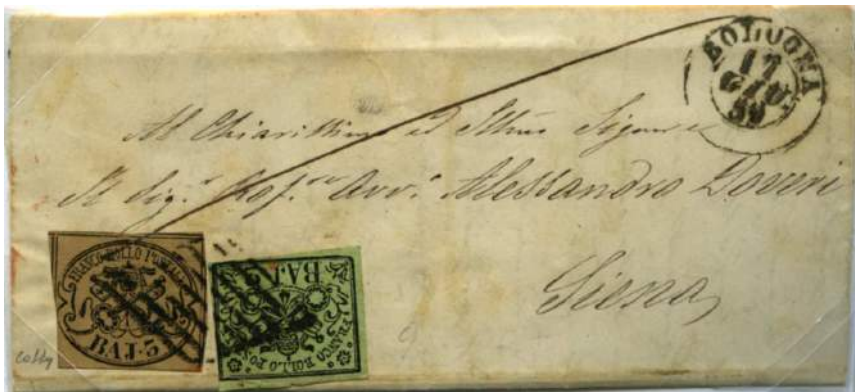 BOLOGNA
17
GIU
59
Al Chiarissimo ed Illmo Signore
Il Sig.r Prof.re Avv.o Alessandro Doveri
Siena
FRANCO BOLLO POSTALE
BAJ. 3
BAJ.
FRANCO BOLLO POS